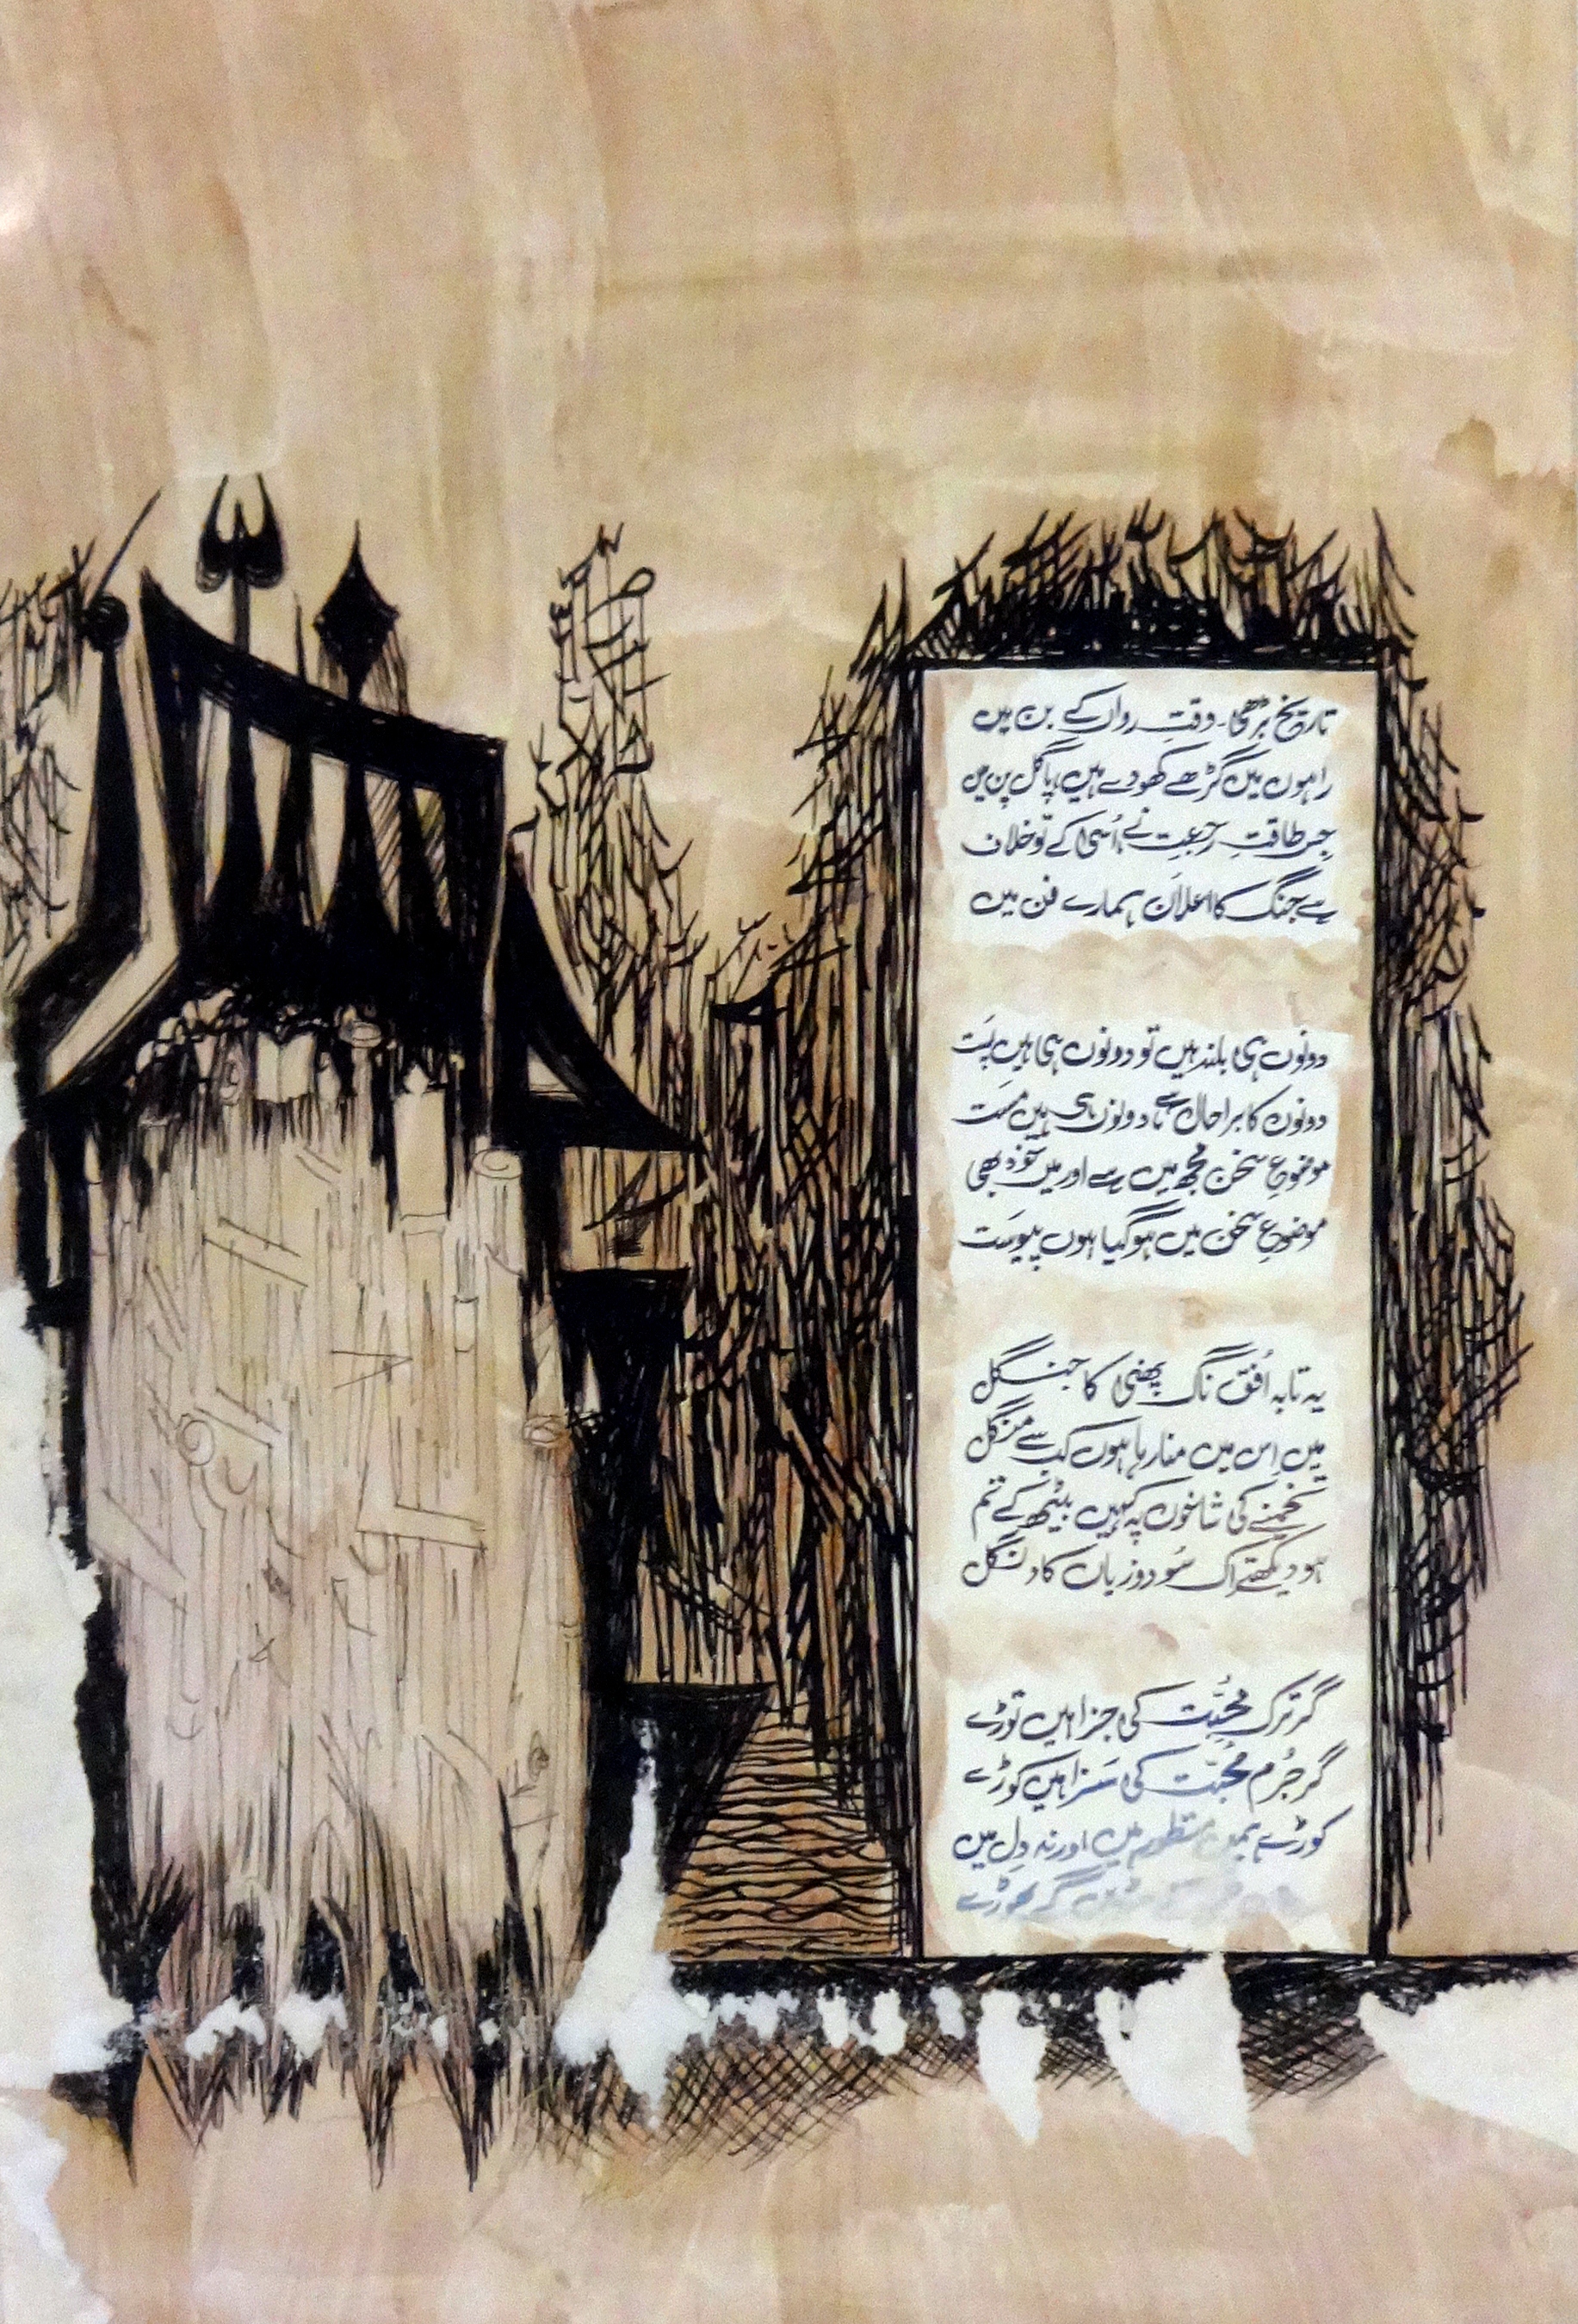 تاریخ بڑھی۔ وقتِ رواں کے بن میں
راہوں میں گڑھے کھودے ہیں پاگل پن میں
جس طاقتِ رجعت نے، اُسی کے تو خلاف
ہے جنگ کا اعلان ہمارے فن میں
دونوں ہی بلند ہیں تو دونوں ہی ہیں پَست
دونوں کا برا حال ہے دونوں ہی ہیں مَست
موضوعِ سخن مجھ میں ہے اور میں خود بھی
موضوعِ سخن میں ہو گیا ہوں پیوَست
یہ تا بہ اُفق ناگ پھنی کا جنگل
میں اِس میں منا رہا ہوں کب سے منگل
نخمنے کی شاخوں پہ کہیں بیٹھ کے تم
ہو دیکھتے اک سُود و زیاں کا دنگل
گر ترکِ محبّت کی جزا ہیں توڑے
گر جُرمِ محبّت کی سَزا ہیں کوڑے
کوڑے ہمیں منظور ہیں اور نہ دِل میں
گر